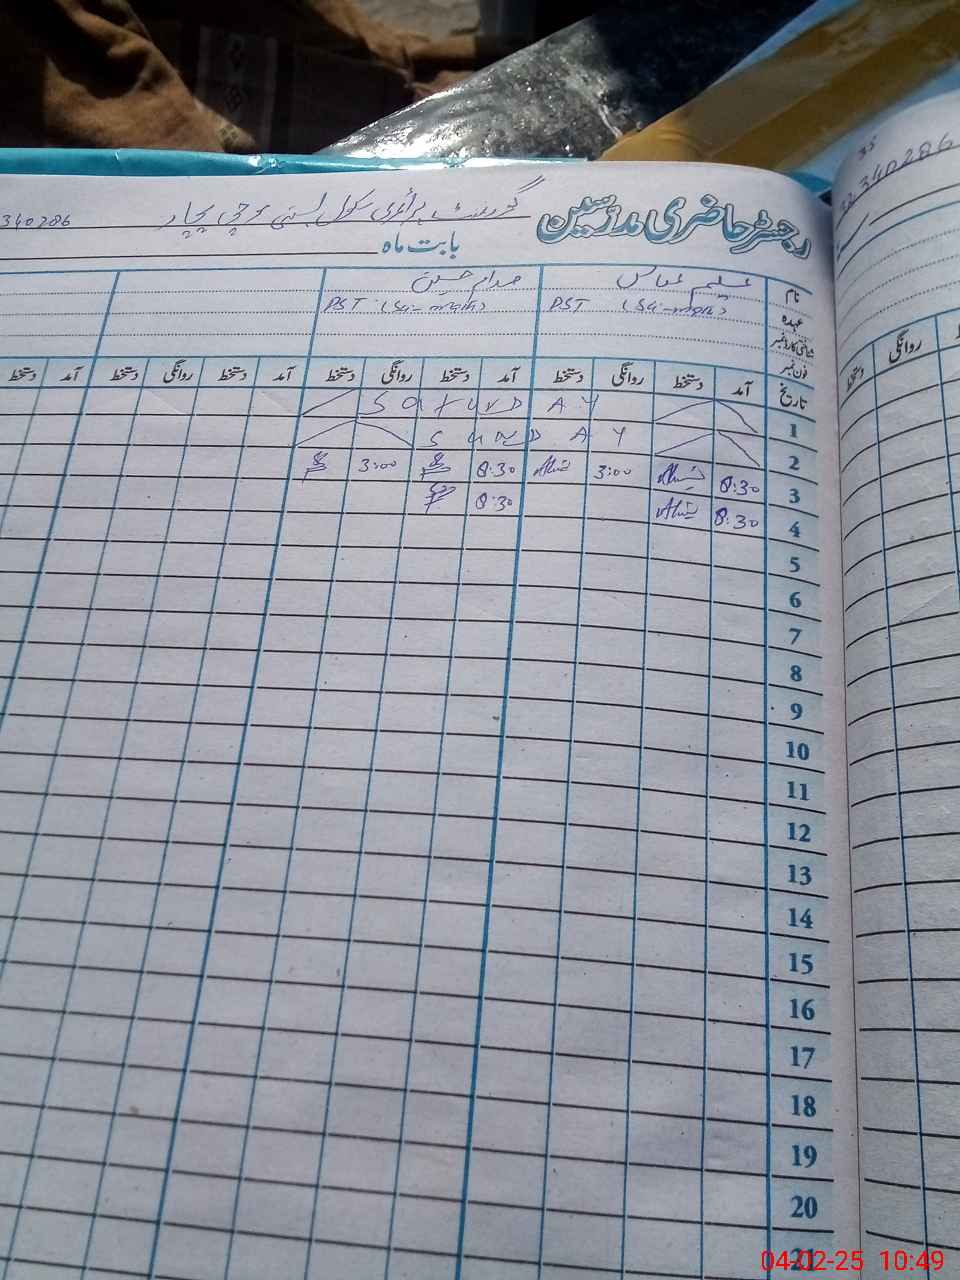 رجسٹر حاضری مدرسین
گورنمنٹ پرائمری سکول بستی
340286
بابت ماہ
نام
عباس
صدام حسین
عہدہ
PST (Sci-math)
PST (Sci-math)
شناختی کارڈ نمبر
فون نمبر
تاریخ آمد دستخط روانگی دستخط آمد دستخط روانگی دستخط آمد دستخط روانگی دستخط آمد دستخط
1 SATURDAY
2 SUNDAY
3 8:30 3:00 8:30 3:00
4 8:30 8:30
5
6
7
8
9
10
11
12
13
14
15
16
17
18
19
20
21
340286
روانگی
دستخط
04-02-25 10:49